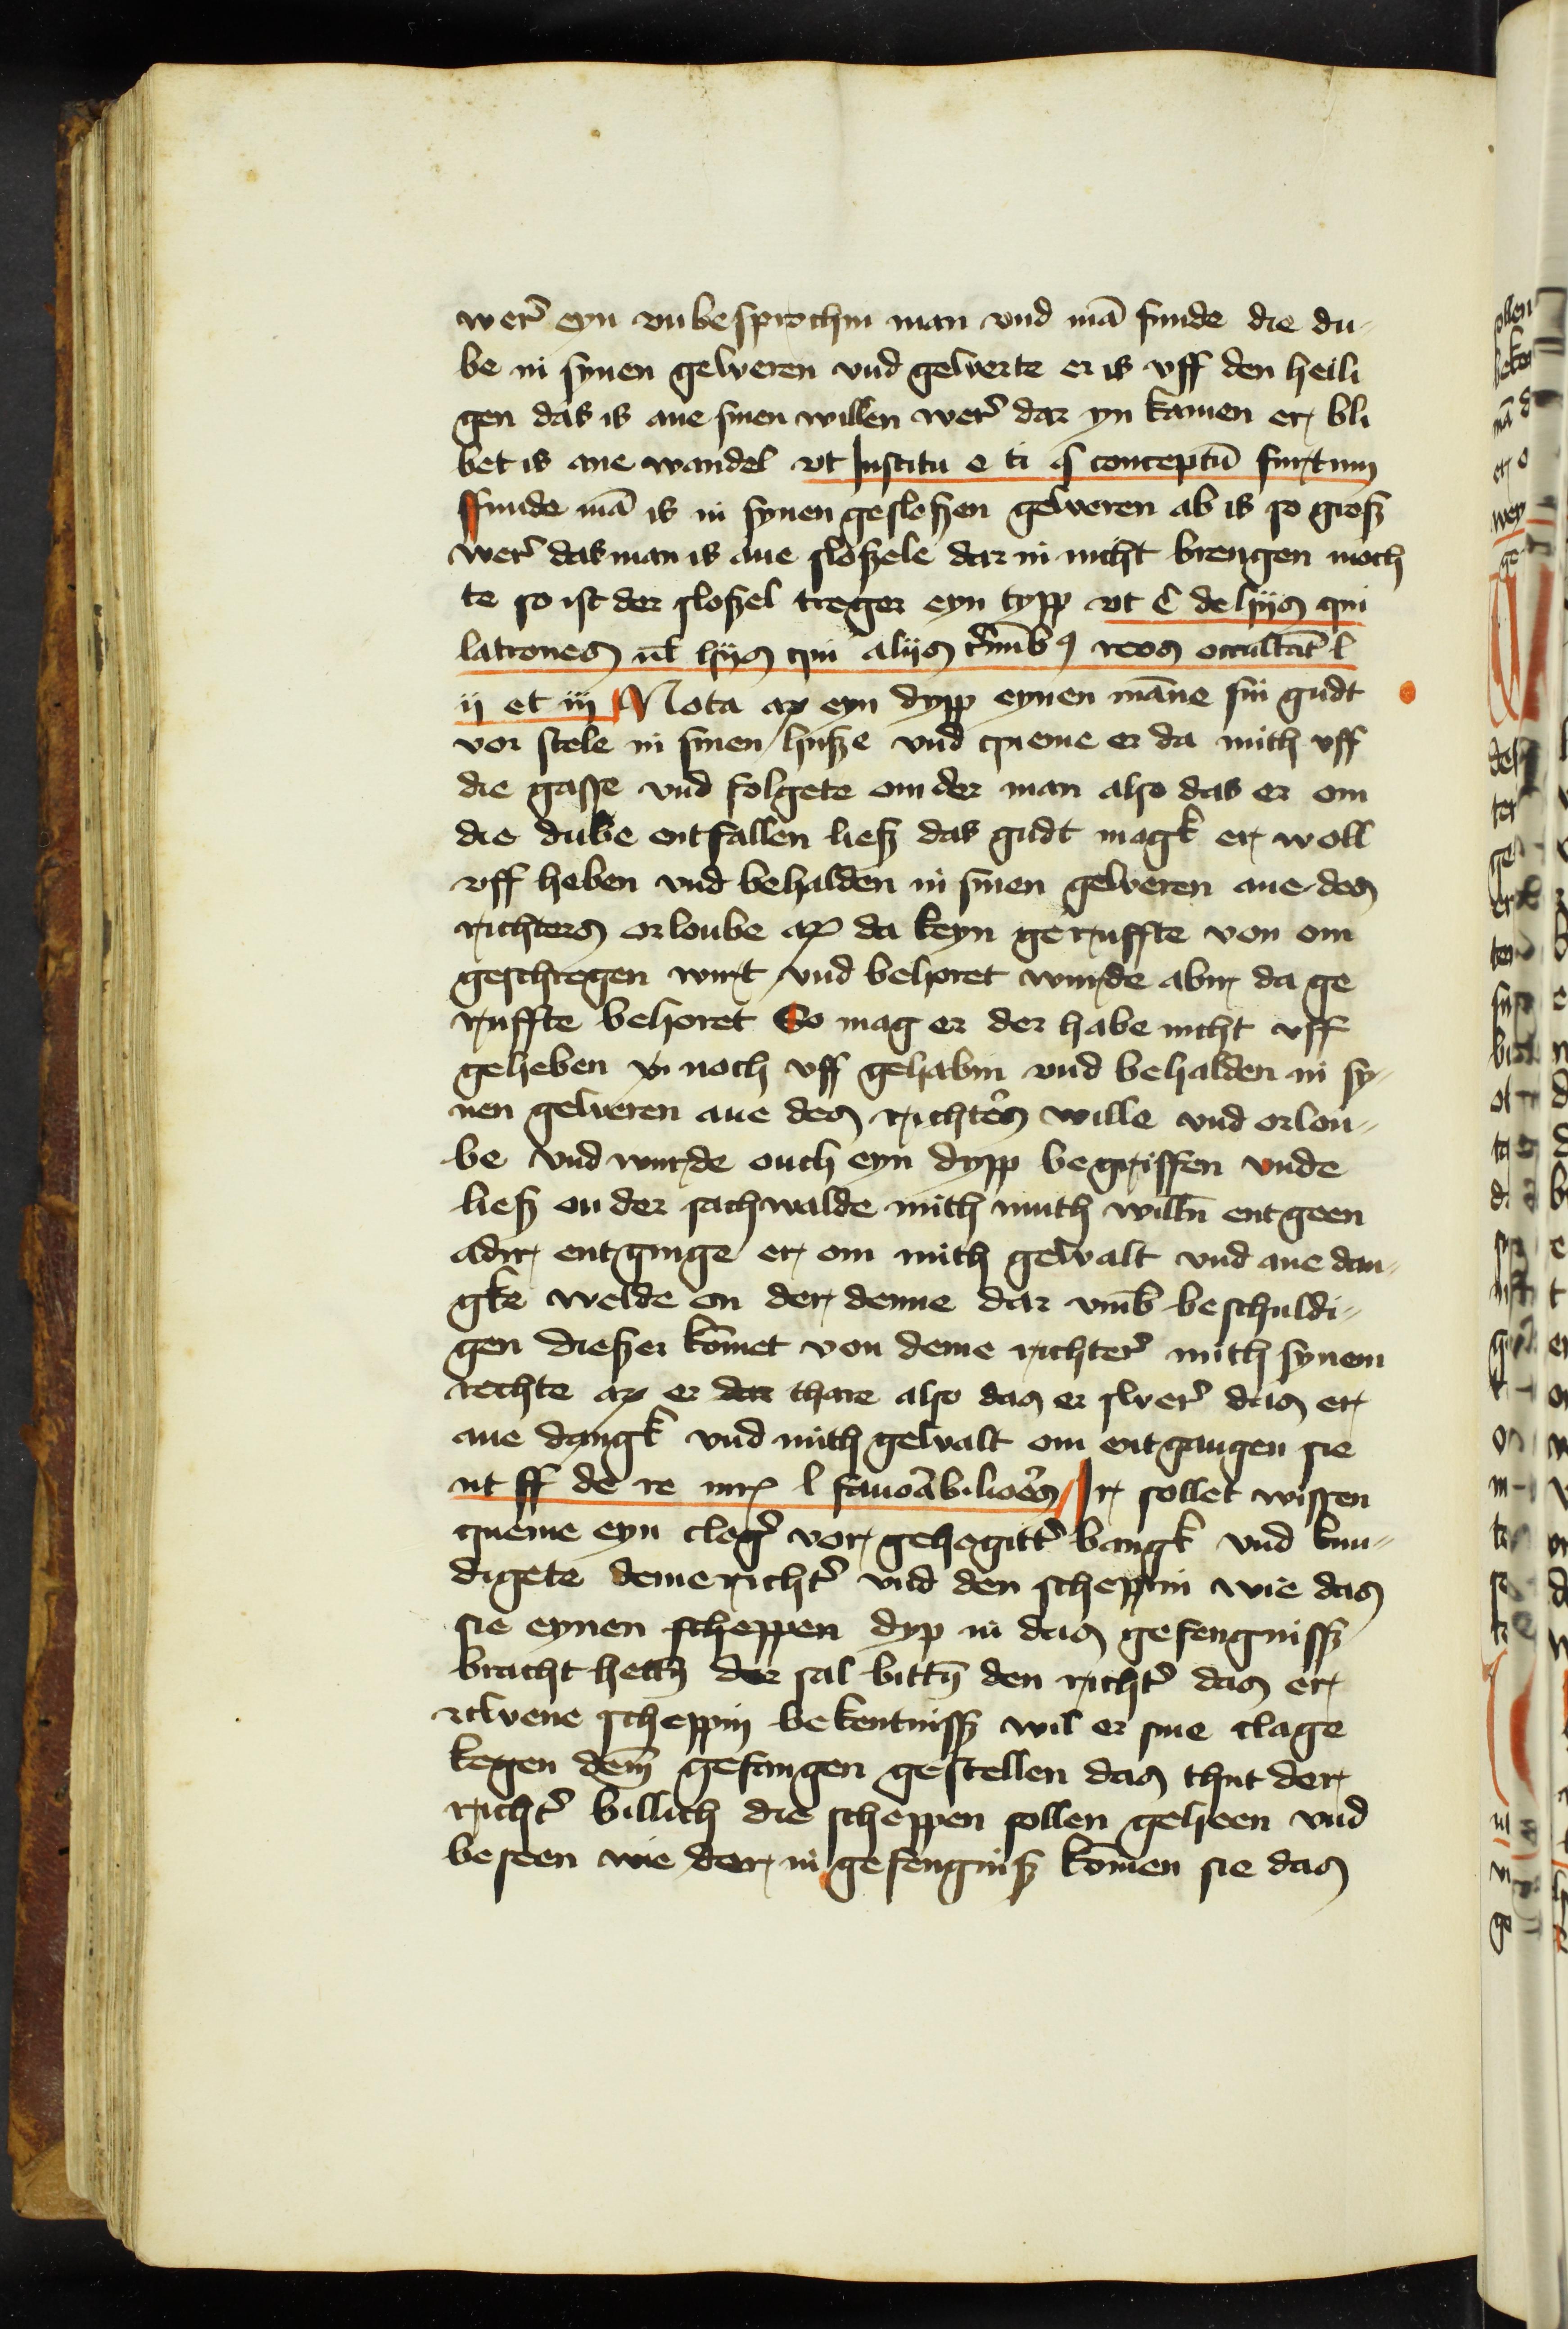 wer̄ eyn vnbesprochin man vnd mā funde die du-
be in synen geweren vnd gewerte er is vff den heili
gen das is ane sinen willen wer̄ dar yn kamen er bli
bet is ane wandel vt Institu e ti § conceptū furtum
ffunde mā is in synen gesloßen geweren ab is so groß
wer̄ das man is ane sloßele dar in nicht brengen moch
te so ist der sloßel treger eyn typp vt C de hijs qui
latrones ul hijs qui alijs c̄mīb9 reos occultāt l
ij et iij Nota ap eyn dypp eynen māne sin gudt
vor stele in sinen huße vnd queme er da mith vff
die gasse vnd folgete om der man also das er om
die dube entfallen ließ das gudt magk er woll
vff heben vnd behalden in sinen geweren ane des
richters orloube ap da keyn geruffte von om
geschregen wirt vnd behoret wurde abir da ge
ruffte behoret So mag er der habe nicht vff
geheben noch vff gehabin vnd behalden in sy-
nen geweren ane des richtes̄ wille vnd orlou-
be vnd wurde ouch eyn dypp begriffen vnde
ließ on der sachwalde mith muth willn̄ entgeen
adir entginge er om mith gewalt vnd ane dan-
gke welde on der denne dar vmb beschuldi-
gen dießer kōmet von deme richter̄ mith synem
rechte ap er dar thare also das er swer̄ das er
ane dangk vnd mith gewalt om entgangen sie
ut ff de re l Ir sollet wissen
queme eyn cleḡ vor gehegitt̄ bangk vnd kun-
digete deme richt̄ vnd den scheppin wie das
sie eynen scheppen dyp in das gefengnisß
bracht hettn̄ der sal bittn̄ den richt̄ das er
zcwene scheppin bekentnisß wil er sine clage
kegen dem̄ gefangen gestellen das thut der
richt̄ billich die scheppen sollen geheen vnd
beseen wie der in gefengniß kōmen sie das